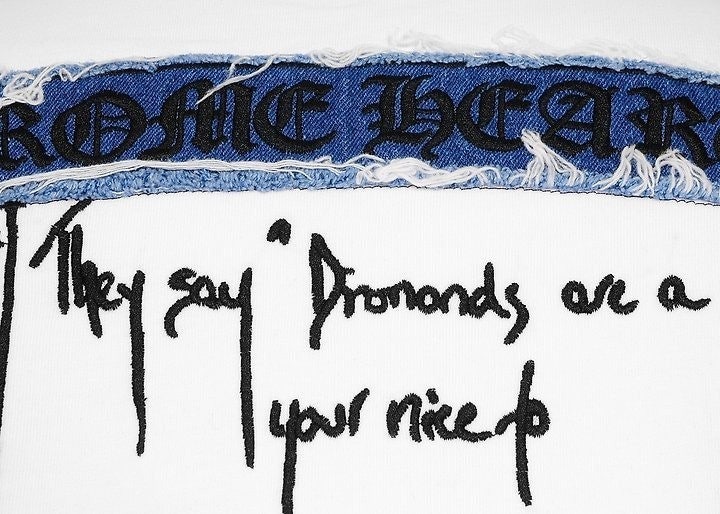 ROME HEAR
They say "Diamonds are a
your nice to